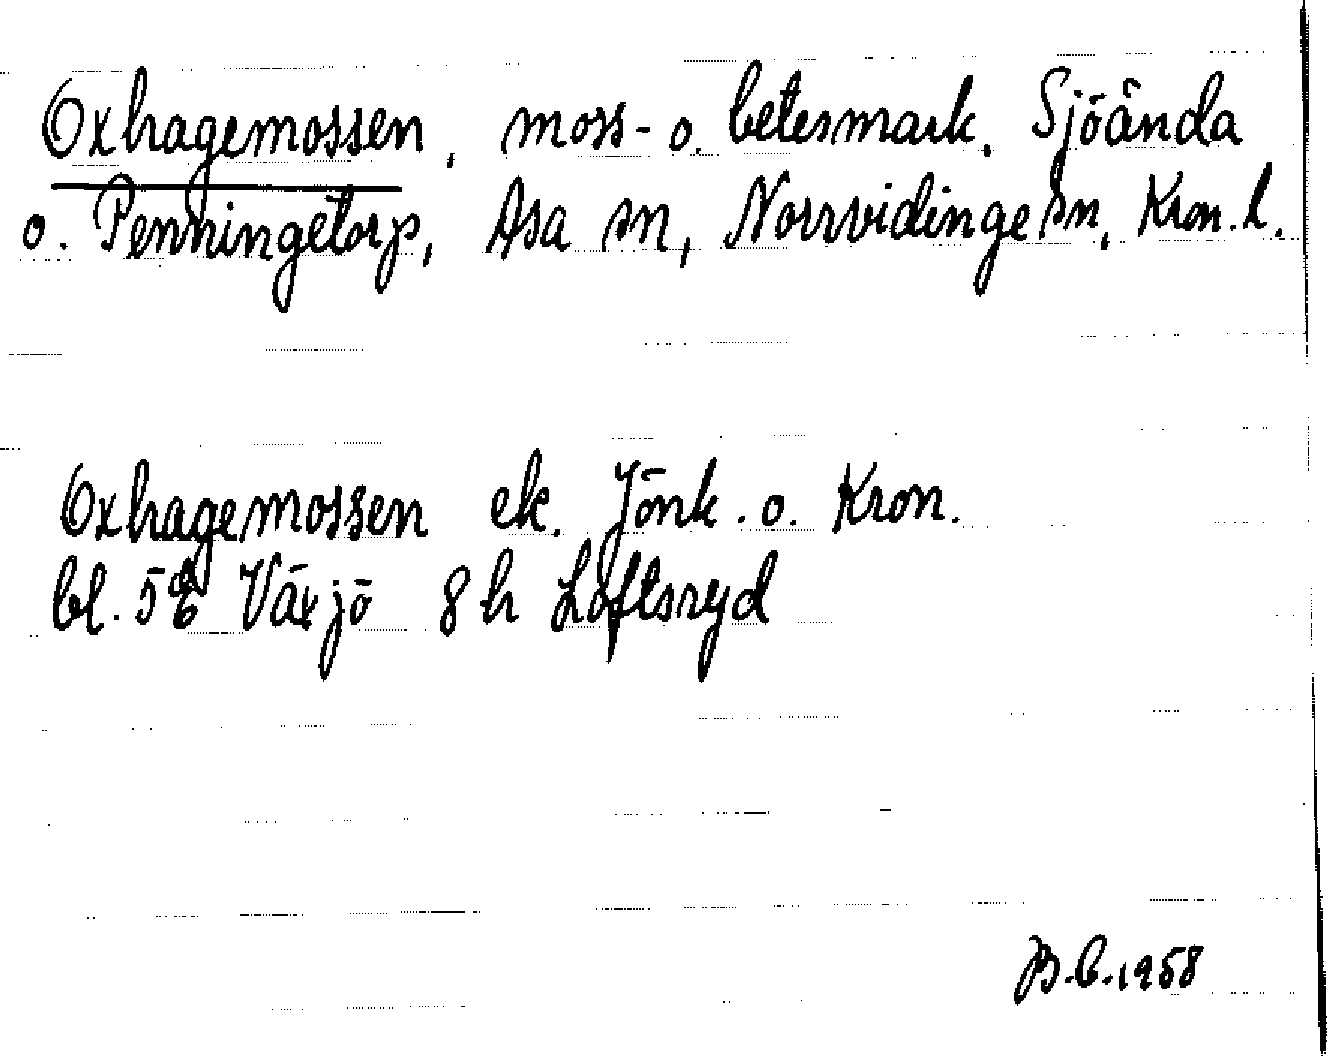 Oxhagemossen, moss- o. betesmark. Sjöända
o. Penningetorp, Asa sn, Norrvidinge sn, Kron. l.
Oxhagemossen ek. Jönk. o. Kron.
bl. 5E Växjö 8 h Loftsryd
B.E. 1958